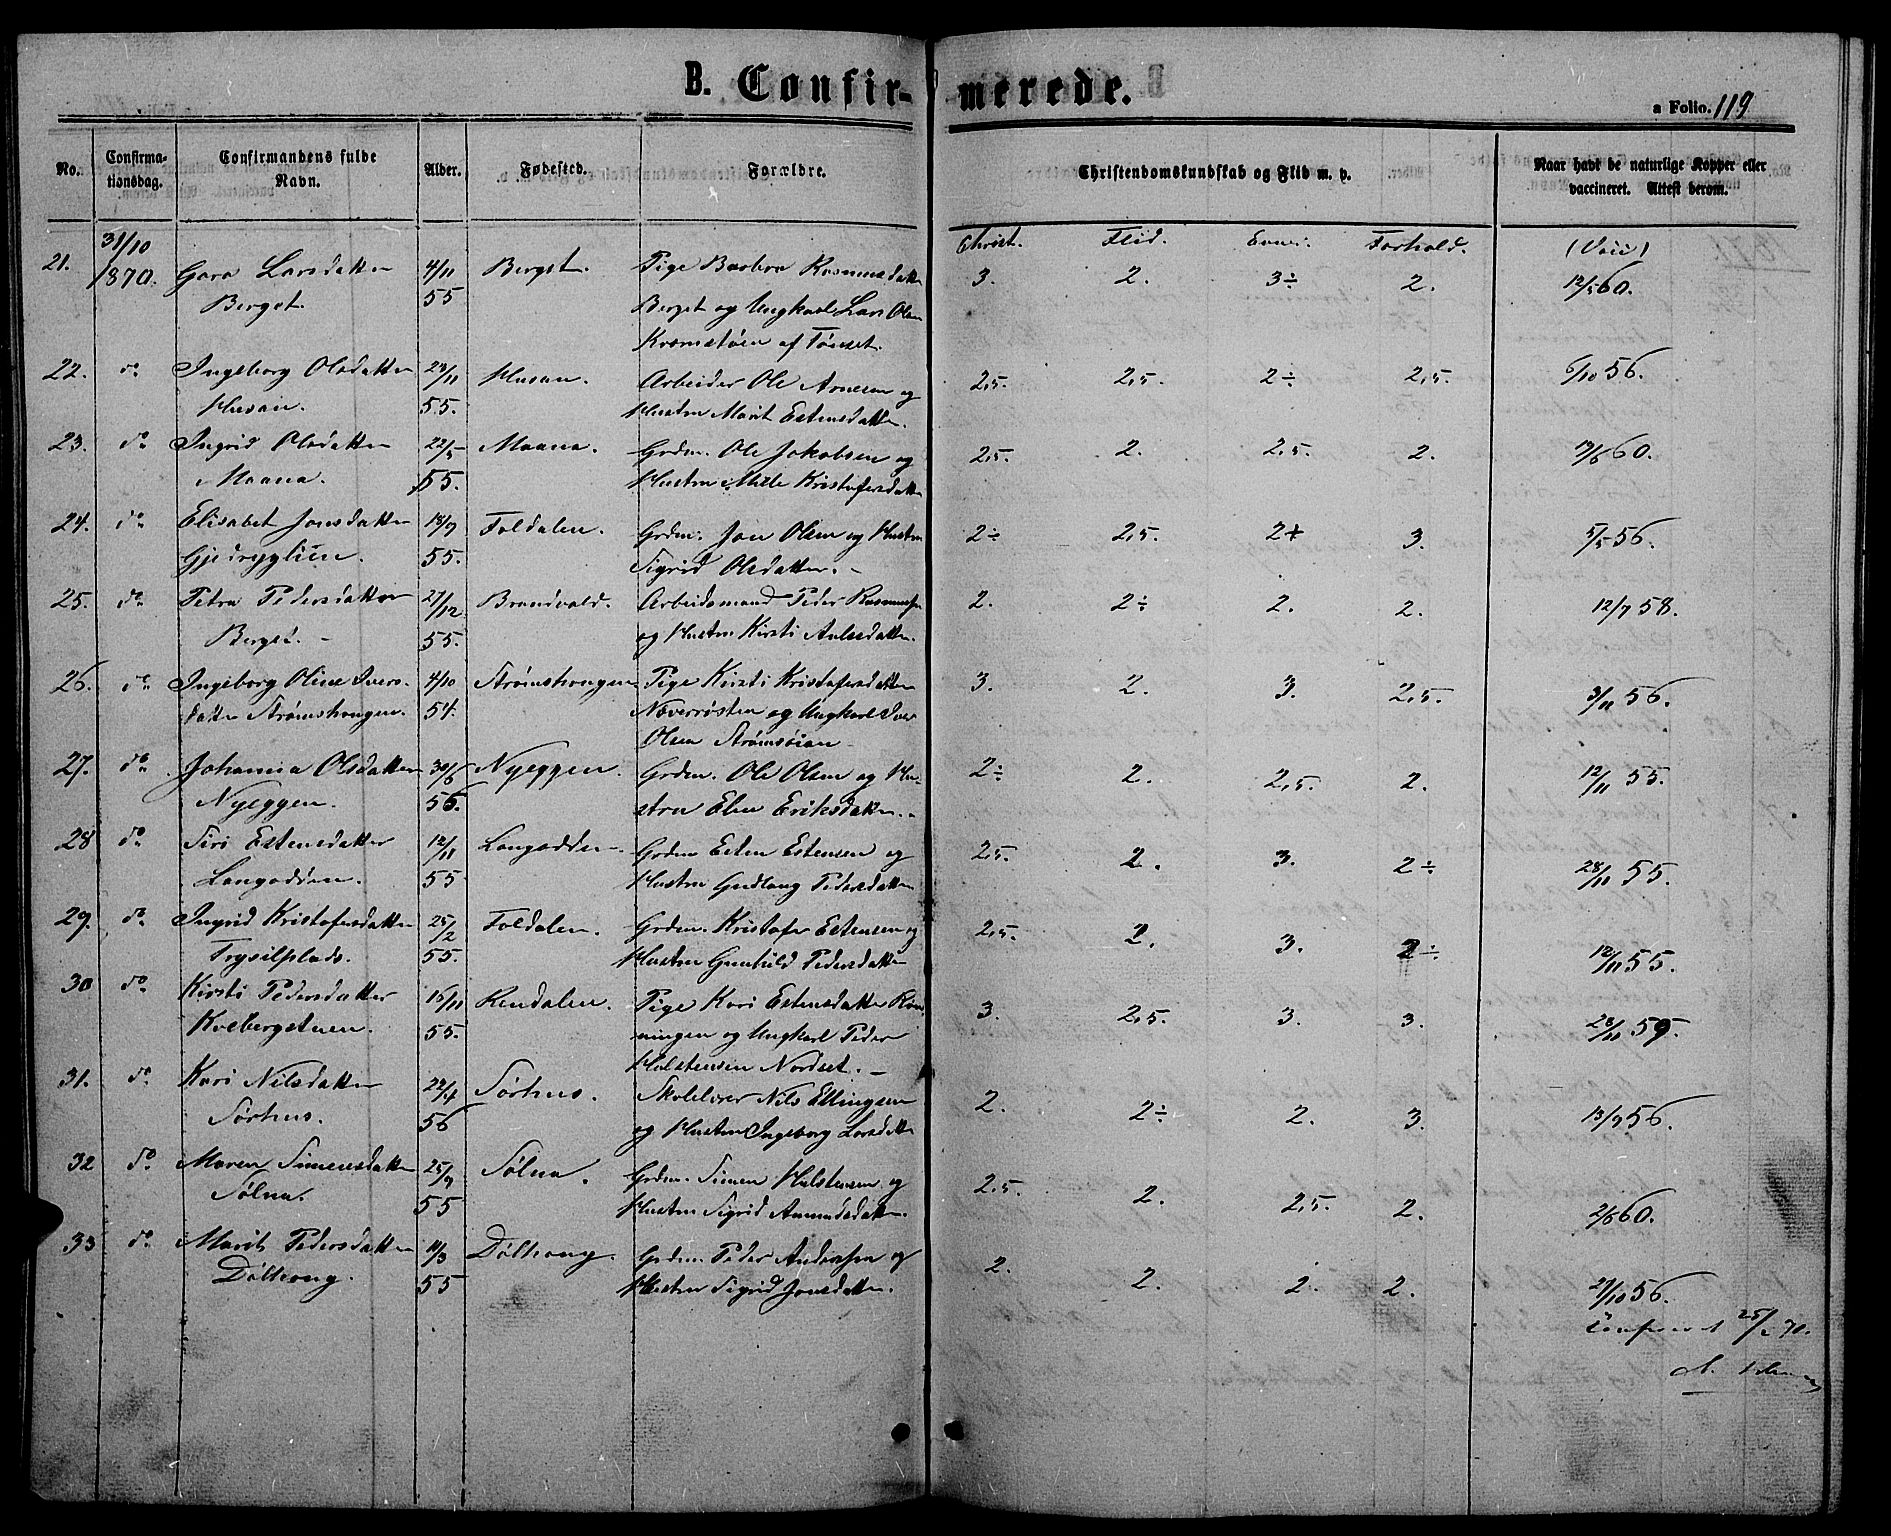 B. Confirmerede.
a Folio. 119
No.
Confirmationsdag.
Confirmandens fulde Navn.
Alder.
Fødested.
Forældre.
Christendomskundskab og Flid m. v.
Naar havt de naturlige Kopper eller vaccineret. Attest derom.
Christ. Flid. Evner. Forhold. (Vacc)
21. 31/10 Goro Larsdatter 4/11 Berget. Pige Barbra Rasmusdatter 3. 2. 3÷ 2. 12/5 60.
1870. Berget. 55 Berget og Ungkarl Lars Olsen
Kværnstøen af Tønset.
22. do Ingeborg Olsdatter 23/11 Husan. Arbeider Ole Arnesen og 2,5. 2,5. 2÷ 2,5. 6/10 56.
Husan. 55. Hustru Marit Estensdatter.
23. do Ingrid Olsdatter 22/5 Maana. Grdm. Ole Jakobsen og 2,5. 2. 2,5. 2. 60.
Maana. 55. Hustru Mille Kristofersdatter
24. do Elisabet Jonsdatter 18/9 Foldalen. Grdm. Jon Olsen og Hustru 2÷ 2,5. 2+ 3. 5/5 56.
Gjedrygglien. 55. Sigrid Olsdatter. -
25. do Petra Pedersdatter 27/12 Brandvold. Arbeidsmand Peder Rasmussen 2. 2÷ 2. 2. 12/7 58.
Berget. - 55. og Hustru Kirsti Aulesdatter.
26. do Ingeborg Oline Ivers- 4/10 Strømshongen Pige Kirsti Kristofersdatter 3. 2. 3. 2,5. 3/11 56.
datter Strømshongen. 54. Næverrøsten og Ungkarl Iver
Olsen Strømsøien
27. do Johanna Olsdatter 30/6 Nyeggen. Grdm. Ole Olsen og Hu- 2÷ 2. 2,5. 2. 12/11 55.
Nyeggen. 56. stru Elen Eriksdatter. -
28 do Siri Estensdatter 12/11 Langodden Grdm Esten Estensen og 2,5. 2. 3. 2÷ 28/11 55.
Langodden. 55 Hustru Gudlaug Pedersdatter
29. do Ingrid Kristofersdatter 25/2 Foldalen. Grdm. Kristofer Estensen og 2,5. 2. 3. 2÷ 12/11 55.
Trysilplads. 55. Hustru Gunhild Pedersdatter
30 do Kirsti Pedersdatter 16/11 Rendalen. Pige Kari Estensdatter Røn- 3. 2,5. 3. 3. 28/10 59.
Kvebergstuen. 55. ningen og Ungkarl Peder
Halstensen Nordset. -
31. do Kari Nilsdatter 22/4 Sørhus. Skolelærer Nils Ellingsen 2. 2÷ 2. 3. 13/9 56.
Sørhus. 56 og Hustru Ingeborg Larsdatter
32 do Maren Simensdatter 25/9 Sølna. Grdm. Simen Halstensen og 2,5. 2. 2,5. 2. 2/6 60.
Sølna. 55 Hustru Sigrid Amundsdatter.
33 do Marit Pedersdatter 11/3 Dølhong. Grdm. Peder Andersen og 2. 2. 2. 2. 27/10 56.
Dølhong. 55 Hustru Sigrid Jonsdatter.